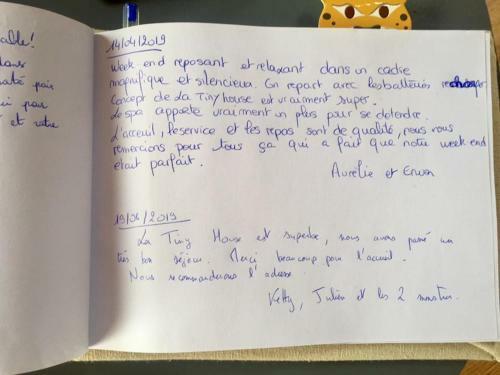 able!
dans
pour
et votre
14/04/2019
Week-end reposant et relaxant dans un cadre
magnifique et silencieux. On repart avec les batteries rechargées
Concept de La Tiny house est vraiment super.
Le spa apporte vraiment un plus pour se detendre.
L'acceuil, le service et les repas sont de qualité, nous vous
remercions pour tous ça qui a fait que notre week-end
etait parfait.
Aurélie et Erwan
19/04/2019
La Tiny House est superbe, nous avons passé un
très bon séjour. Merci beaucoup pour l'accueil.
Nous recommanderons l'adresse.
Ketty, Julien et les 2 monstres.